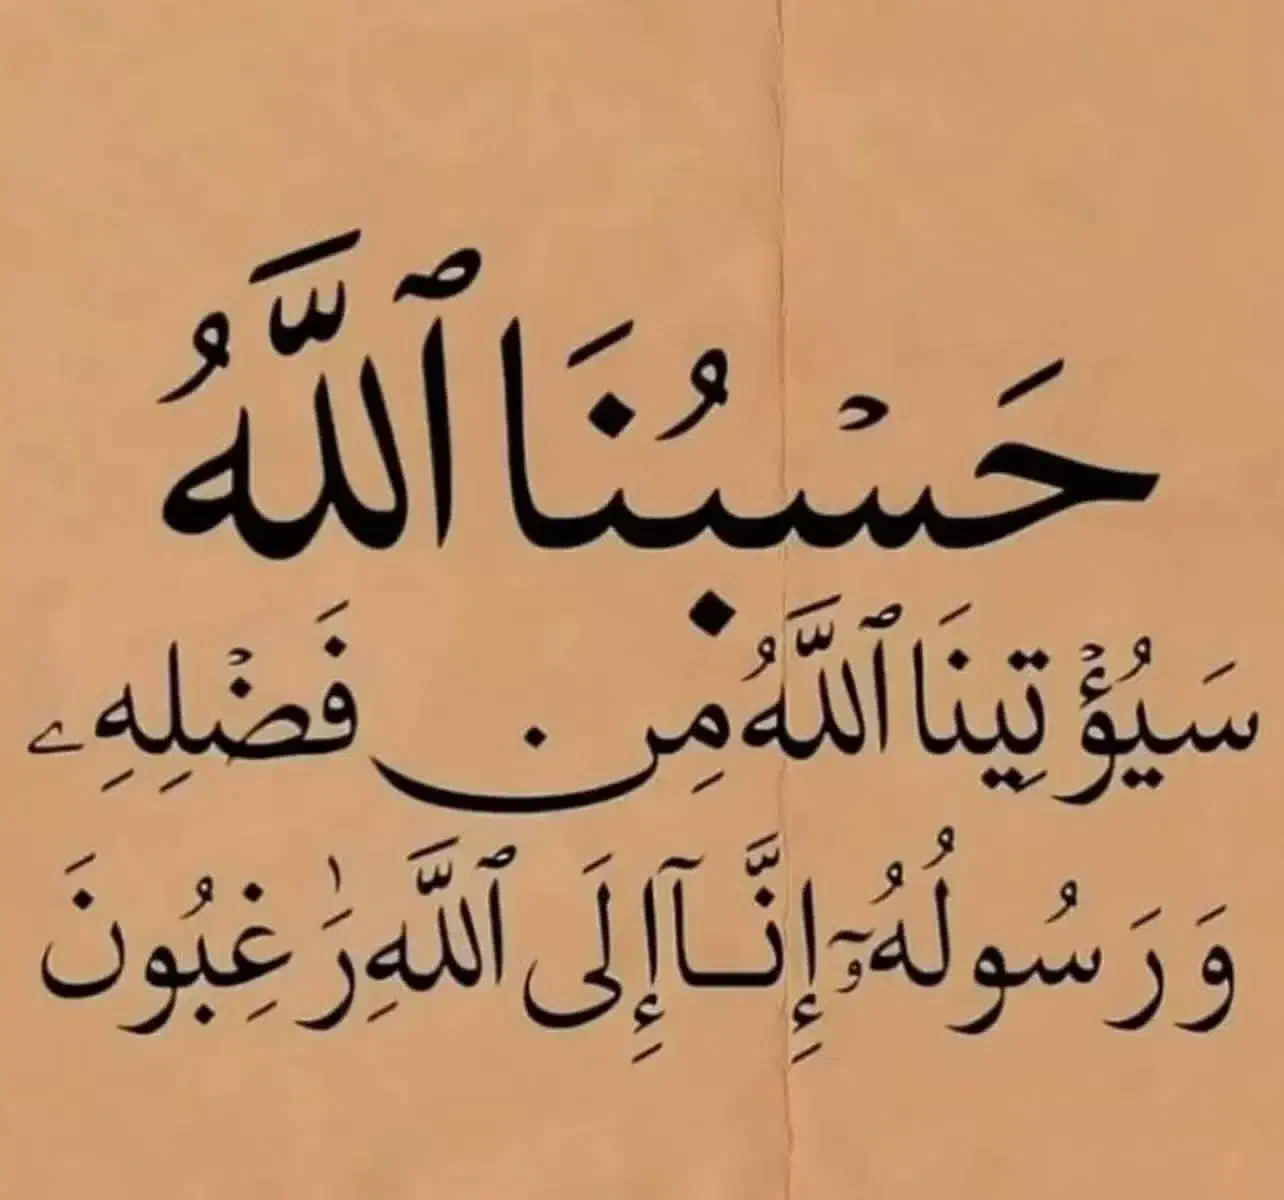 حَسْبُنَا ٱللَّهُ
سَيُؤْتِينَا ٱللَّهُ مِن فَضْلِهِۦ
وَرَسُولُهُۥٓ إِنَّآ إِلَى ٱللَّهِ رَٰغِبُونَ